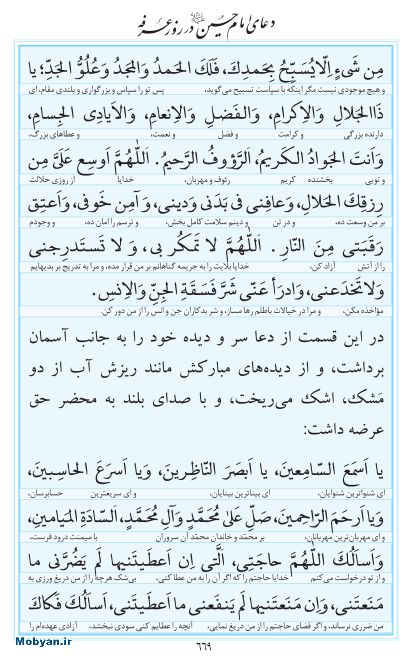 دعای امام حسین در روز عرفه
مِن شَیءٍ اِلّا یُسَبِّحُ بِحَمدِکَ، فَلَکَ الحَمدُ وَالمَجدُ وَعُلُوُّ الجَدِّ؛ یا
و هیچ موجودی نیست مگر اینکه با سیاست تسبیح می‌گوید، پس تو را سپاس و بزرگواری و بلندی مقام، ای
ذَاالجَلالِ وَالاِکرامِ، وَالفَضلِ وَالاِنعامِ، وَالاَیادِی الجِسامِ،
دارنده بزرگی و کرامت و فضل و نعمت، و عطاهای بزرگ،
وَاَنتَ الجَوادُ الکَریمُ، اَلرَّؤُوفُ الرَّحیمُ. اَللّٰهُمَّ اَوسِع عَلَیَّ مِن
و تویی بخشنده کریم رئوف و مهربان، خدایا از روزی حلالت
رِزقِکَ الحَلالِ، وَعافِنی فی بَدَنی وَدینی، وَآمِن خَوفی، وَاَعتِق
بر من وسعت ده، و در تن و دینم سلامت کامل بخش، و ترسم را امان ده، و وجودم
رَقَبَتی مِنَ النّارِ. اَللّٰهُمَّ لا تَمکُر بی، وَ لا تَستَدرِجنی
را از آتش آزاد کن، خدایا بلایت را به جریمه گناهانم بر من قرار مده، و مرا به تدریج بر بدیهایم
وَلا تَخدَعنی، وَادرَأ عَنّی شَرَّ فَسَقَةِ الجِنِّ وَالاِنسِ.
مؤاخذه مکن، و مرا در خیالات باطلم رها مساز، و شر بدکاران جن و انس را از من دور کن.
در این قسمت از دعا سر و دیده خود را به جانب آسمان
برداشت، و از دیده‌های مبارکش مانند ریزش آب از دو
مَشک، اشک می‌ریخت، و با صدای بلند به محضر حق
عرضه داشت:
یا اَسمَعَ السّامِعینَ، یا اَبصَرَ النّاظِرینَ، وَیا اَسرَعَ الحاسِبینَ،
ای شنواترین شنوایان، ای بیناترین بینایان، و ای سریعترین حسابرسان،
وَیا اَرحَمَ الرّاحِمینَ، صَلِّ عَلیٰ مُحَمَّدٍ وَآلِ مُحَمَّدٍ، اَلسّادَةِ المَیامینِ،
و ای مهربان‌ترین مهربانان، بر محمّد و خاندان محمّد آن سروران با میمنت درود فرست،
وَاَسأَلُکَ اللّٰهُمَّ حاجَتِی، الَّتی اِن اَعطَیتَنیها لَم یَضُرَّنی ما
و از تو درخواست می‌کنم خدایا حاجتم را که اگر آن را به من عطا کنی، بی‌شک هرچه را از من دریغ ورزی به
مَنَعتَنی، وَاِن مَنَعتَنیها لَم یَنفَعنی ما اَعطَیتَنی، اَسأَلُکَ فَکاکَ
من ضرری نرساند، و اگر قضای حاجتم را از من دریغ نمایی، آنچه را عطایم کنی سودی نبخشد، آزادی عهده‌ام را
Mobyan.ir
۶۶۹